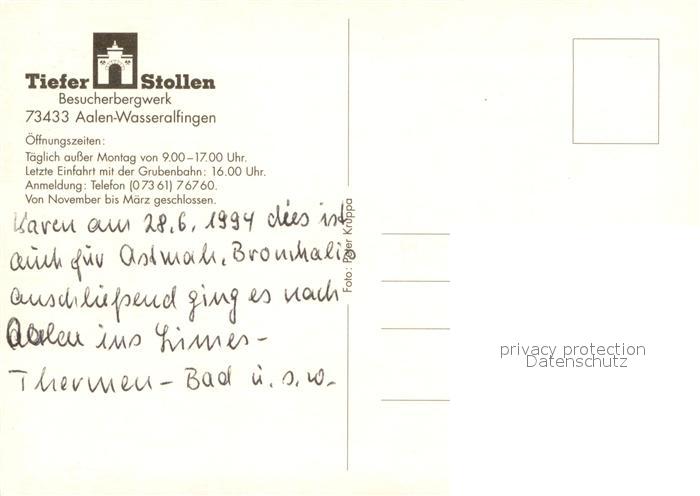 Tiefer Stollen
Besucherbergwerk
73433 Aalen-Wasseralfingen
Öffnungszeiten:
Täglich außer Montag von 9.00–17.00 Uhr.
Letzte Einfahrt mit der Grubenbahn: 16.00 Uhr.
Anmeldung: Telefon (0 73 61) 7 67 60.
Von November bis März geschlossen.
Waren am 28.6.1994 dies ist
auch für Astmah, Bronchalis
anschließend ging es nach
Aalen ins Limes-
Thermen-Bad u.s.w.
Foto: Peter Kruppa
privacy protection
Datenschutz